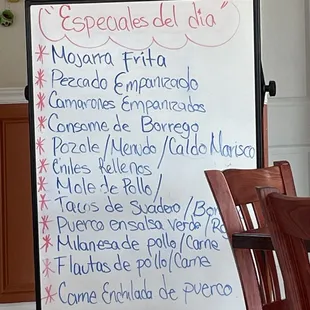 "Especiales del dia"
* Mojarra Frita
* Pezcado Empanizado
* Camarones Empanizados
* Consome de Borrego
* Pozole/Menudo/Caldo Marisco
* Chiles Rellenos
* Mole de Pollo/
* Tacos de Suadero/Bor
* Puerco ensalsa Verde/Ro
* Milanesa de pollo/Carne
* Flautas de pollo/Carne
* Carne Enchilada de puerco